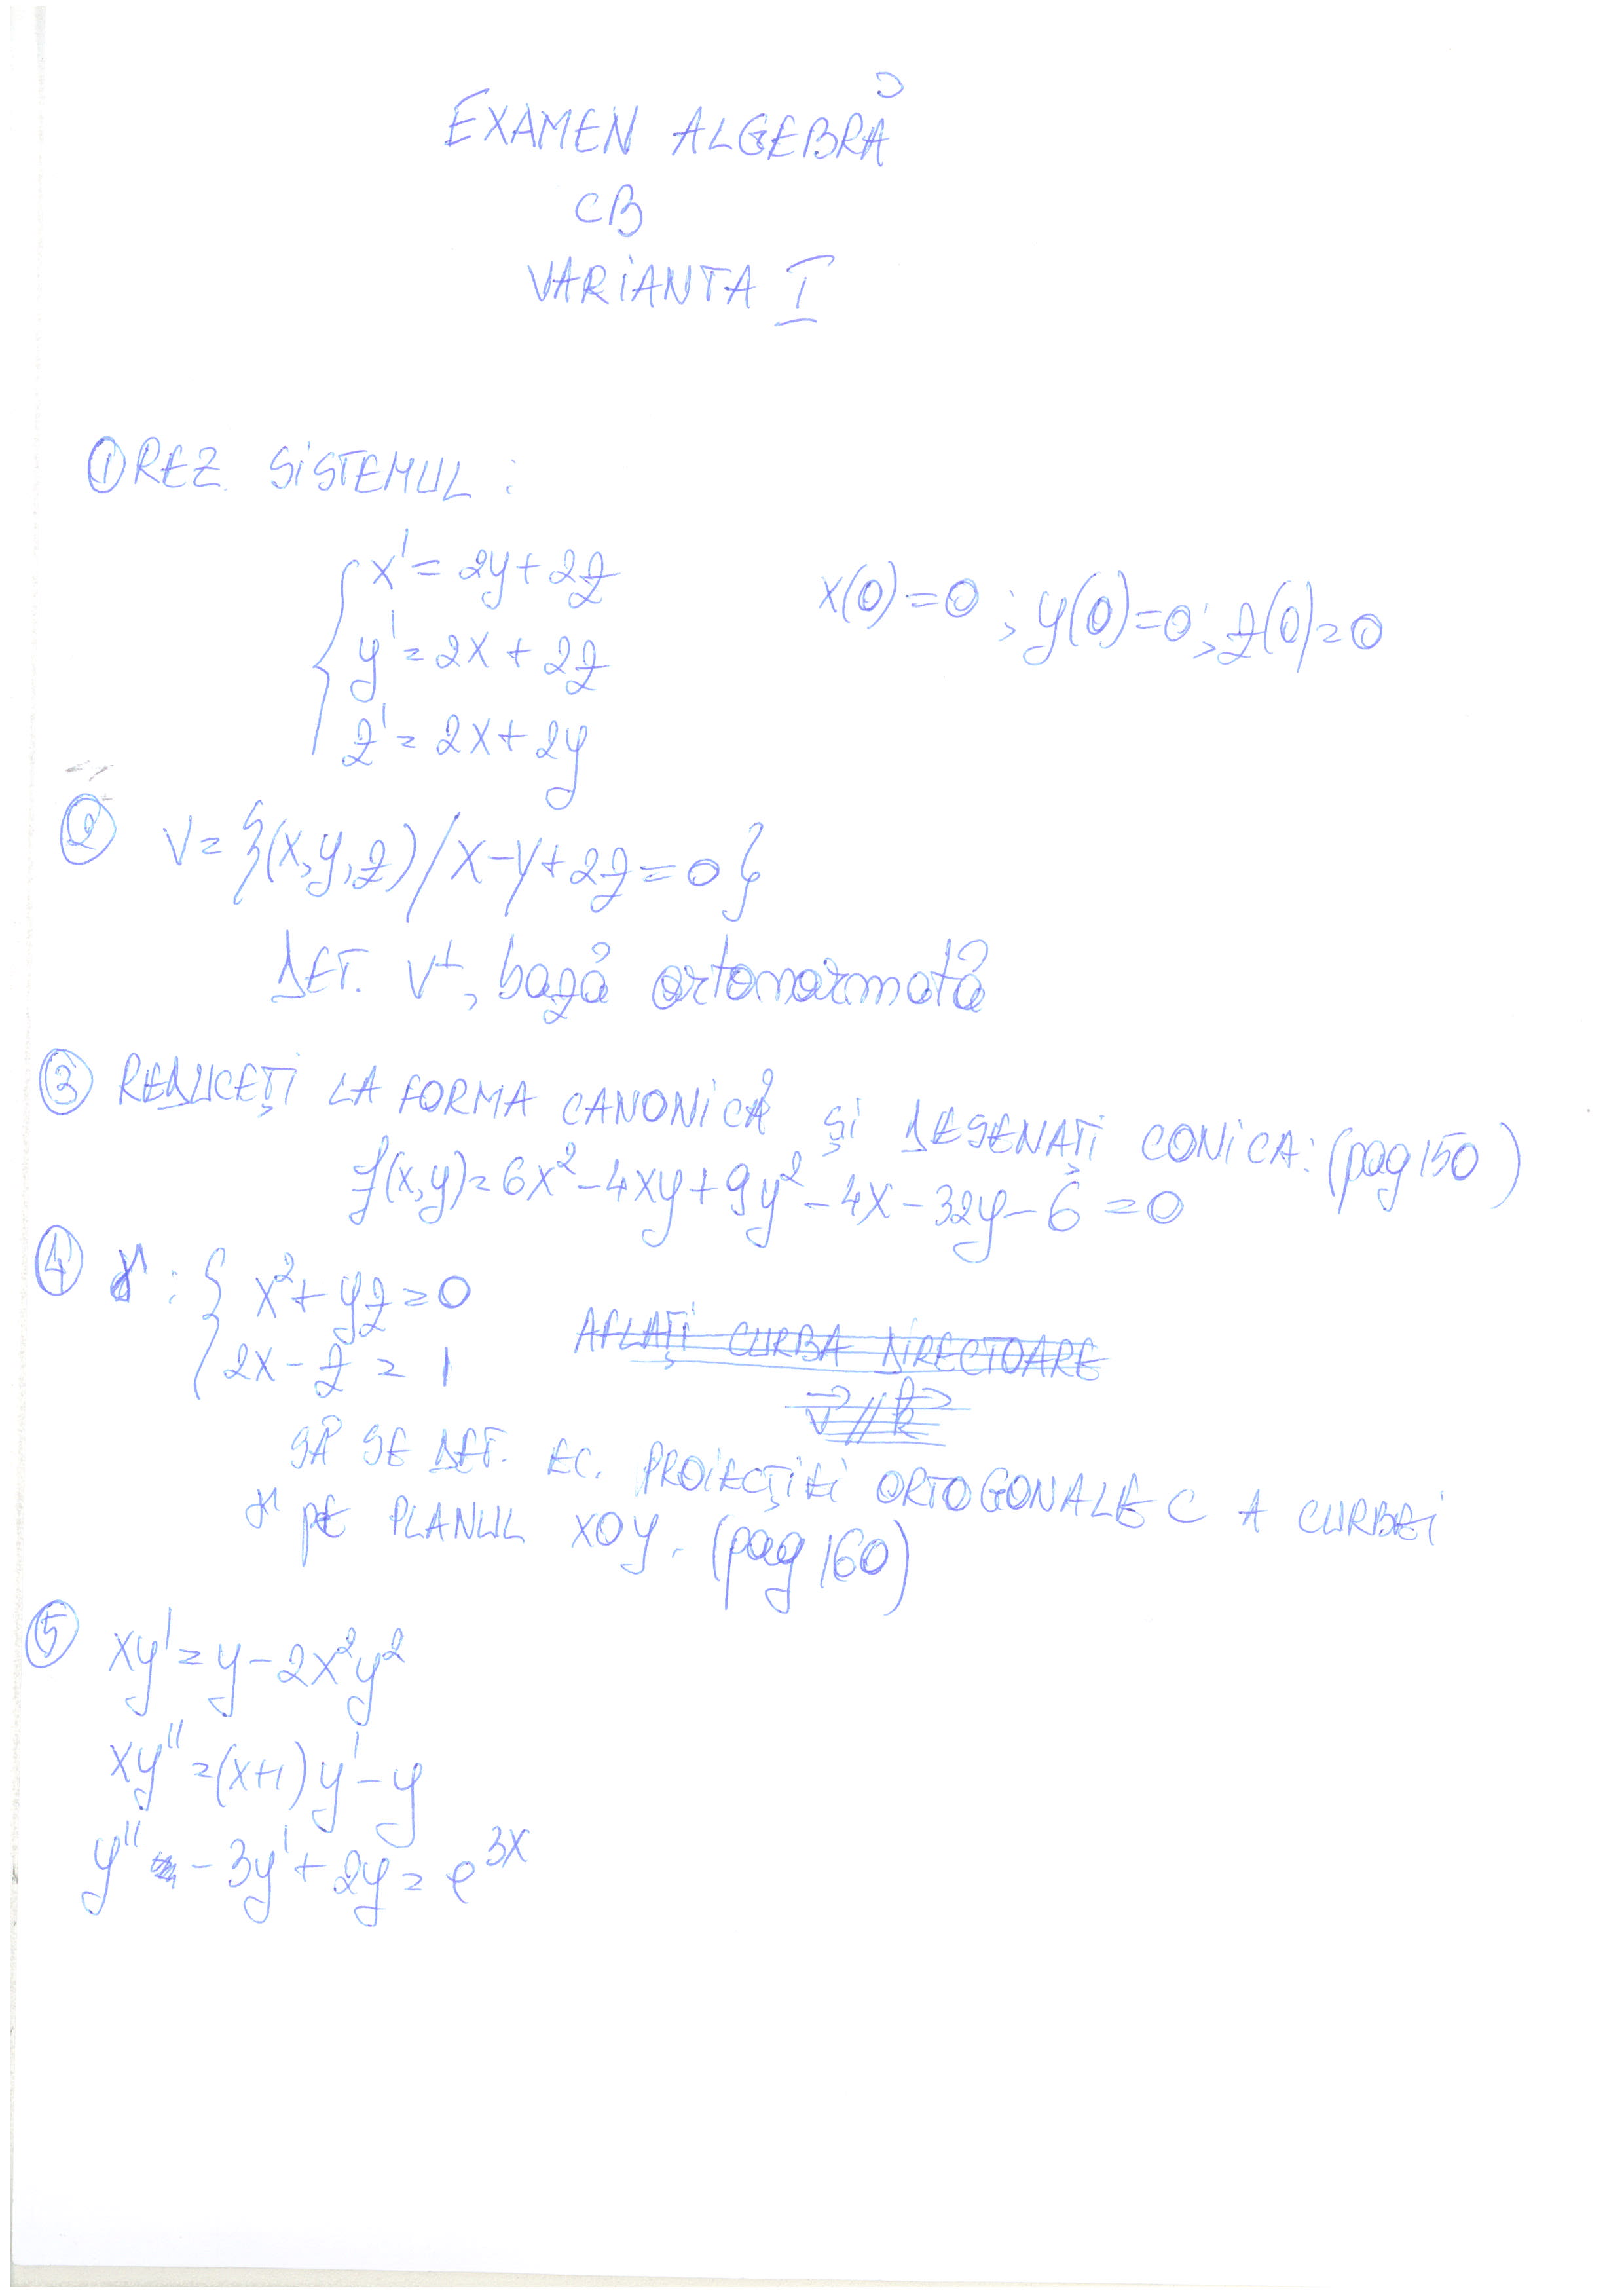 EXAMEN ALGEBRĂ
CB
VARIANTA I
① REZ. SISTEMUL :
x' = 2y + 2z
y' = 2x + 2z
z' = 2x + 2y
x(0) = 0 ; y(0) = 0 ; z(0) = 0
② V = {(x,y,z) / x - y + 2z = 0}
DET. V⊥, bază ortonormată
③ REDUCEȚI LA FORMA CANONICĂ ȘI DESENAȚI CONICA: (pag 150)
f(x,y) = 6x² - 4xy + 9y² - 4x - 32y - 6 = 0
④ γ : { x² + yz = 0
2x - z = 1
AFLAȚI CURBA DIRECTOARE
v // k
SĂ SE DET. EC. PROIECȚIEI ORTOGONALE C A CURBEI
γ PE PLANUL XOY. (pag 160)
⑤ xy' = y - 2x²y²
xy'' = (x+1)y' - y
y'' - 3y' + 2y = e^3x